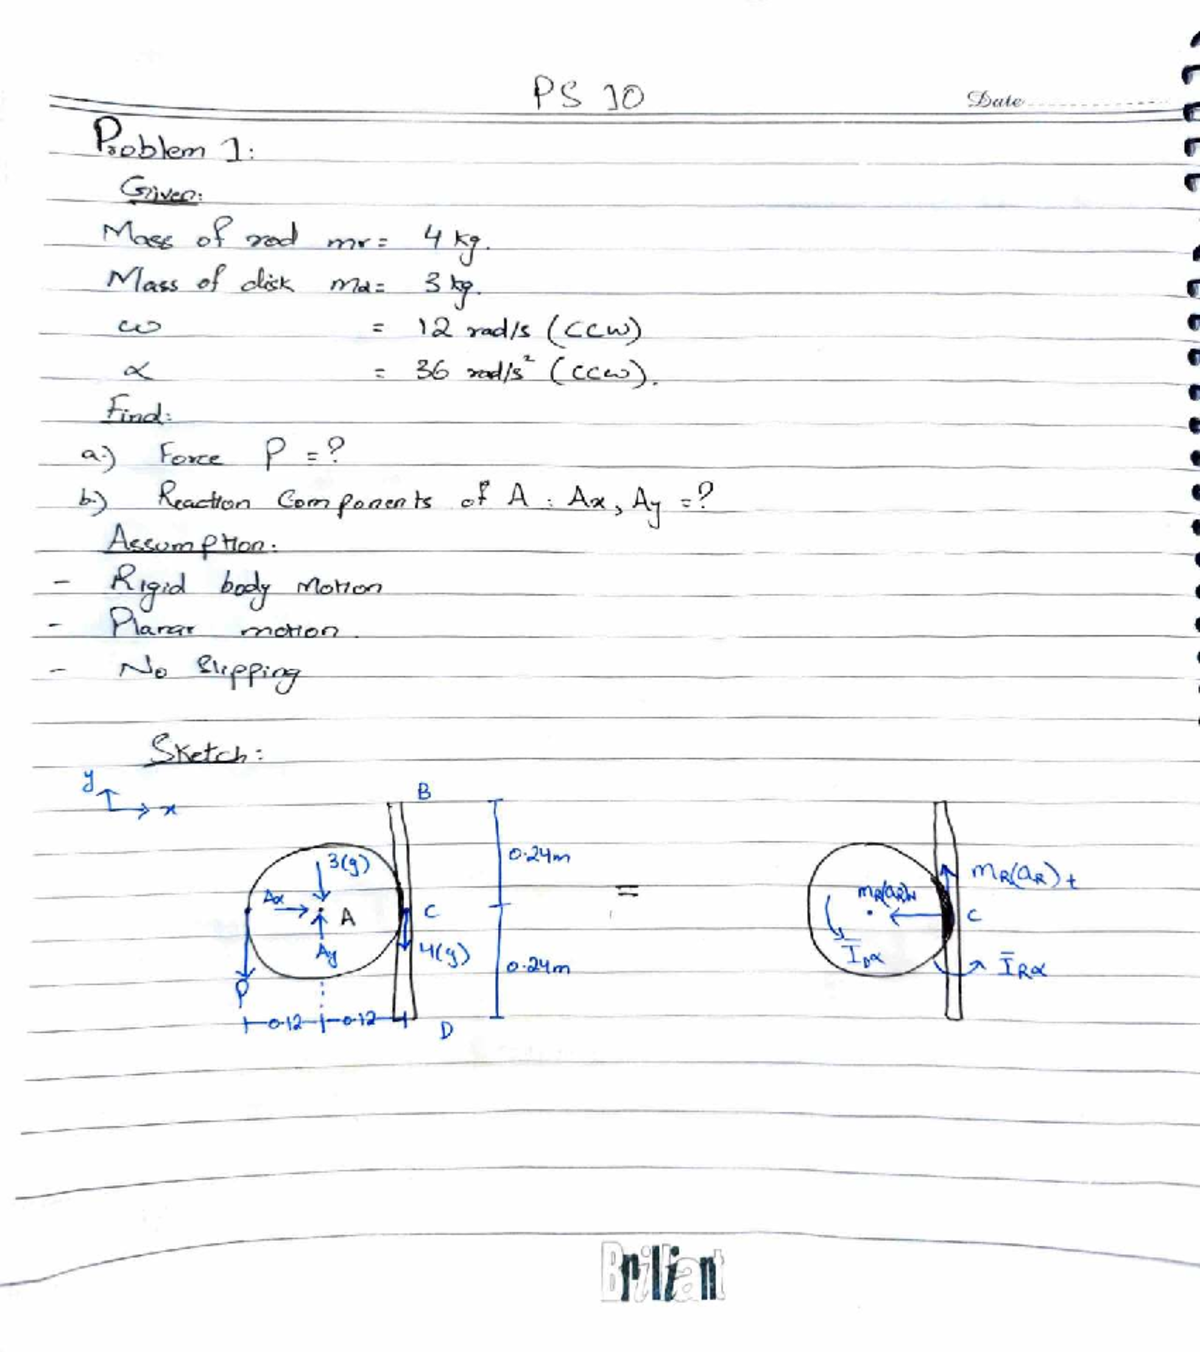 PS 10
Date
Problem 1:
Given:
Mass of rod mr = 4 kg.
Mass of disk md = 3 kg.
ω = 12 rad/s (ccw)
α = 36 rad/s² (ccw).
Find:
a.) Force P = ?
b.) Reaction Components of A : Ax, Ay = ?
Assumption:
- Rigid body Motion
- Planar motion
- No Slipping
Sketch:
y
x
B
3(g)
0.24m
Ax
A
C
Ay
4(g)
0.24m
P
0.12
0.12
D
=
mR(aR)t
mR(aR)N
C
ĪDα
ĪRα
Brilliant